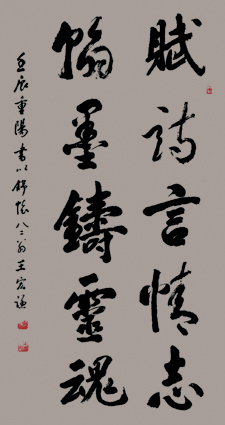 賦詩言情志
翰墨鑄靈魂
壬辰重陽書以錦懷八二翁王宏謙